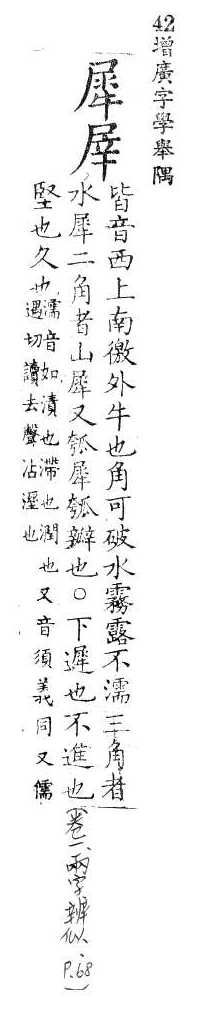 42增廣字學舉隅
犀屖
皆音西上南徼外牛也角可破水霧露不濡三角者
水犀二角者山犀又瓠犀瓠瓣也○下遲也不進也(卷一、兩字辨似、P.68)
堅也久也濡音如漬也滯也潤也又音須義同又儒
遇切讀去聲沾溼也